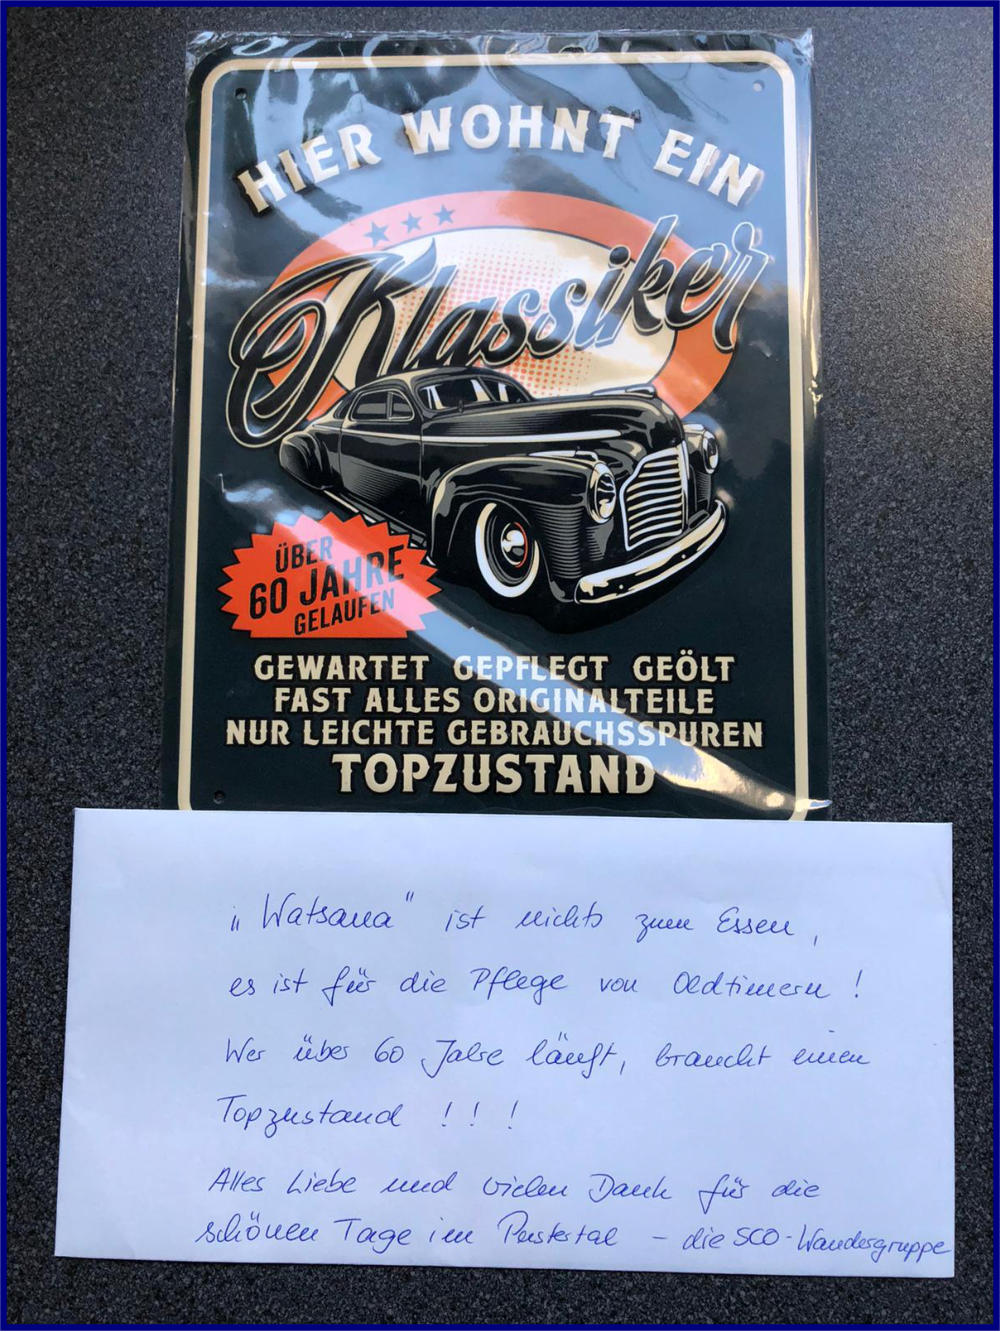 HIER WOHNT EIN
Klassiker
ÜBER
60 JAHRE
GELAUFEN
GEWARTET GEPFLEGT GEÖLT
FAST ALLES ORIGINALTEILE
NUR LEICHTE GEBRAUCHSSPUREN
TOPZUSTAND
„Watsana" ist nichts zum Essen,
es ist für die Pflege von Oldtimern!
Wer über 60 Jahre läuft, braucht einen
Topzustand !!!
Alles Liebe und vielen Dank für die
schönen Tage im Pustertal – die SCO-Wandergruppe